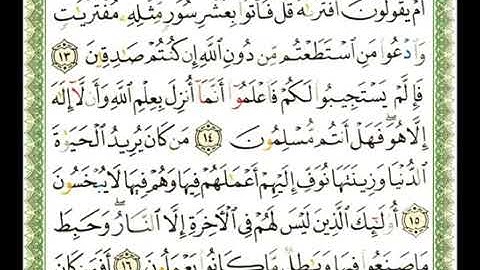 أَمْ يَقُولُونَ ٱفْتَرَىٰهُ قُلْ فَأْتُوا۟ بِعَشْرِ سُوَرٍ مِّثْلِهِۦ مُفْتَرَيَٰتٍ
وَٱدْعُوا۟ مَنِ ٱسْتَطَعْتُم مِّن دُونِ ٱللَّهِ إِن كُنتُمْ صَٰدِقِينَ ١٣
فَإِلَّمْ يَسْتَجِيبُوا۟ لَكُمْ فَٱعْلَمُوٓا۟ أَنَّمَآ أُنزِلَ بِعِلْمِ ٱللَّهِ وَأَن لَّآ إِلَٰهَ
إِلَّا هُوَ ۖ فَهَلْ أَنتُم مُّسْلِمُونَ ١٤ مَن كَانَ يُرِيدُ ٱلْحَيَوٰةَ
ٱلدُّنْيَا وَزِينَتَهَا نُوَفِّ إِلَيْهِمْ أَعْمَٰلَهُمْ فِيهَا وَهُمْ فِيهَا لَا يُبْخَسُونَ
١٥ أُو۟لَٰٓئِكَ ٱلَّذِينَ لَيْسَ لَهُمْ فِى ٱلْءَاخِرَةِ إِلَّا ٱلنَّارُ ۖ وَحَبِطَ
مَا صَنَعُوا۟ فِيهَا وَبَٰطِلٌ مَّا كَانُوا۟ يَعْمَلُونَ ١٦ أَفَمَن كَانَ